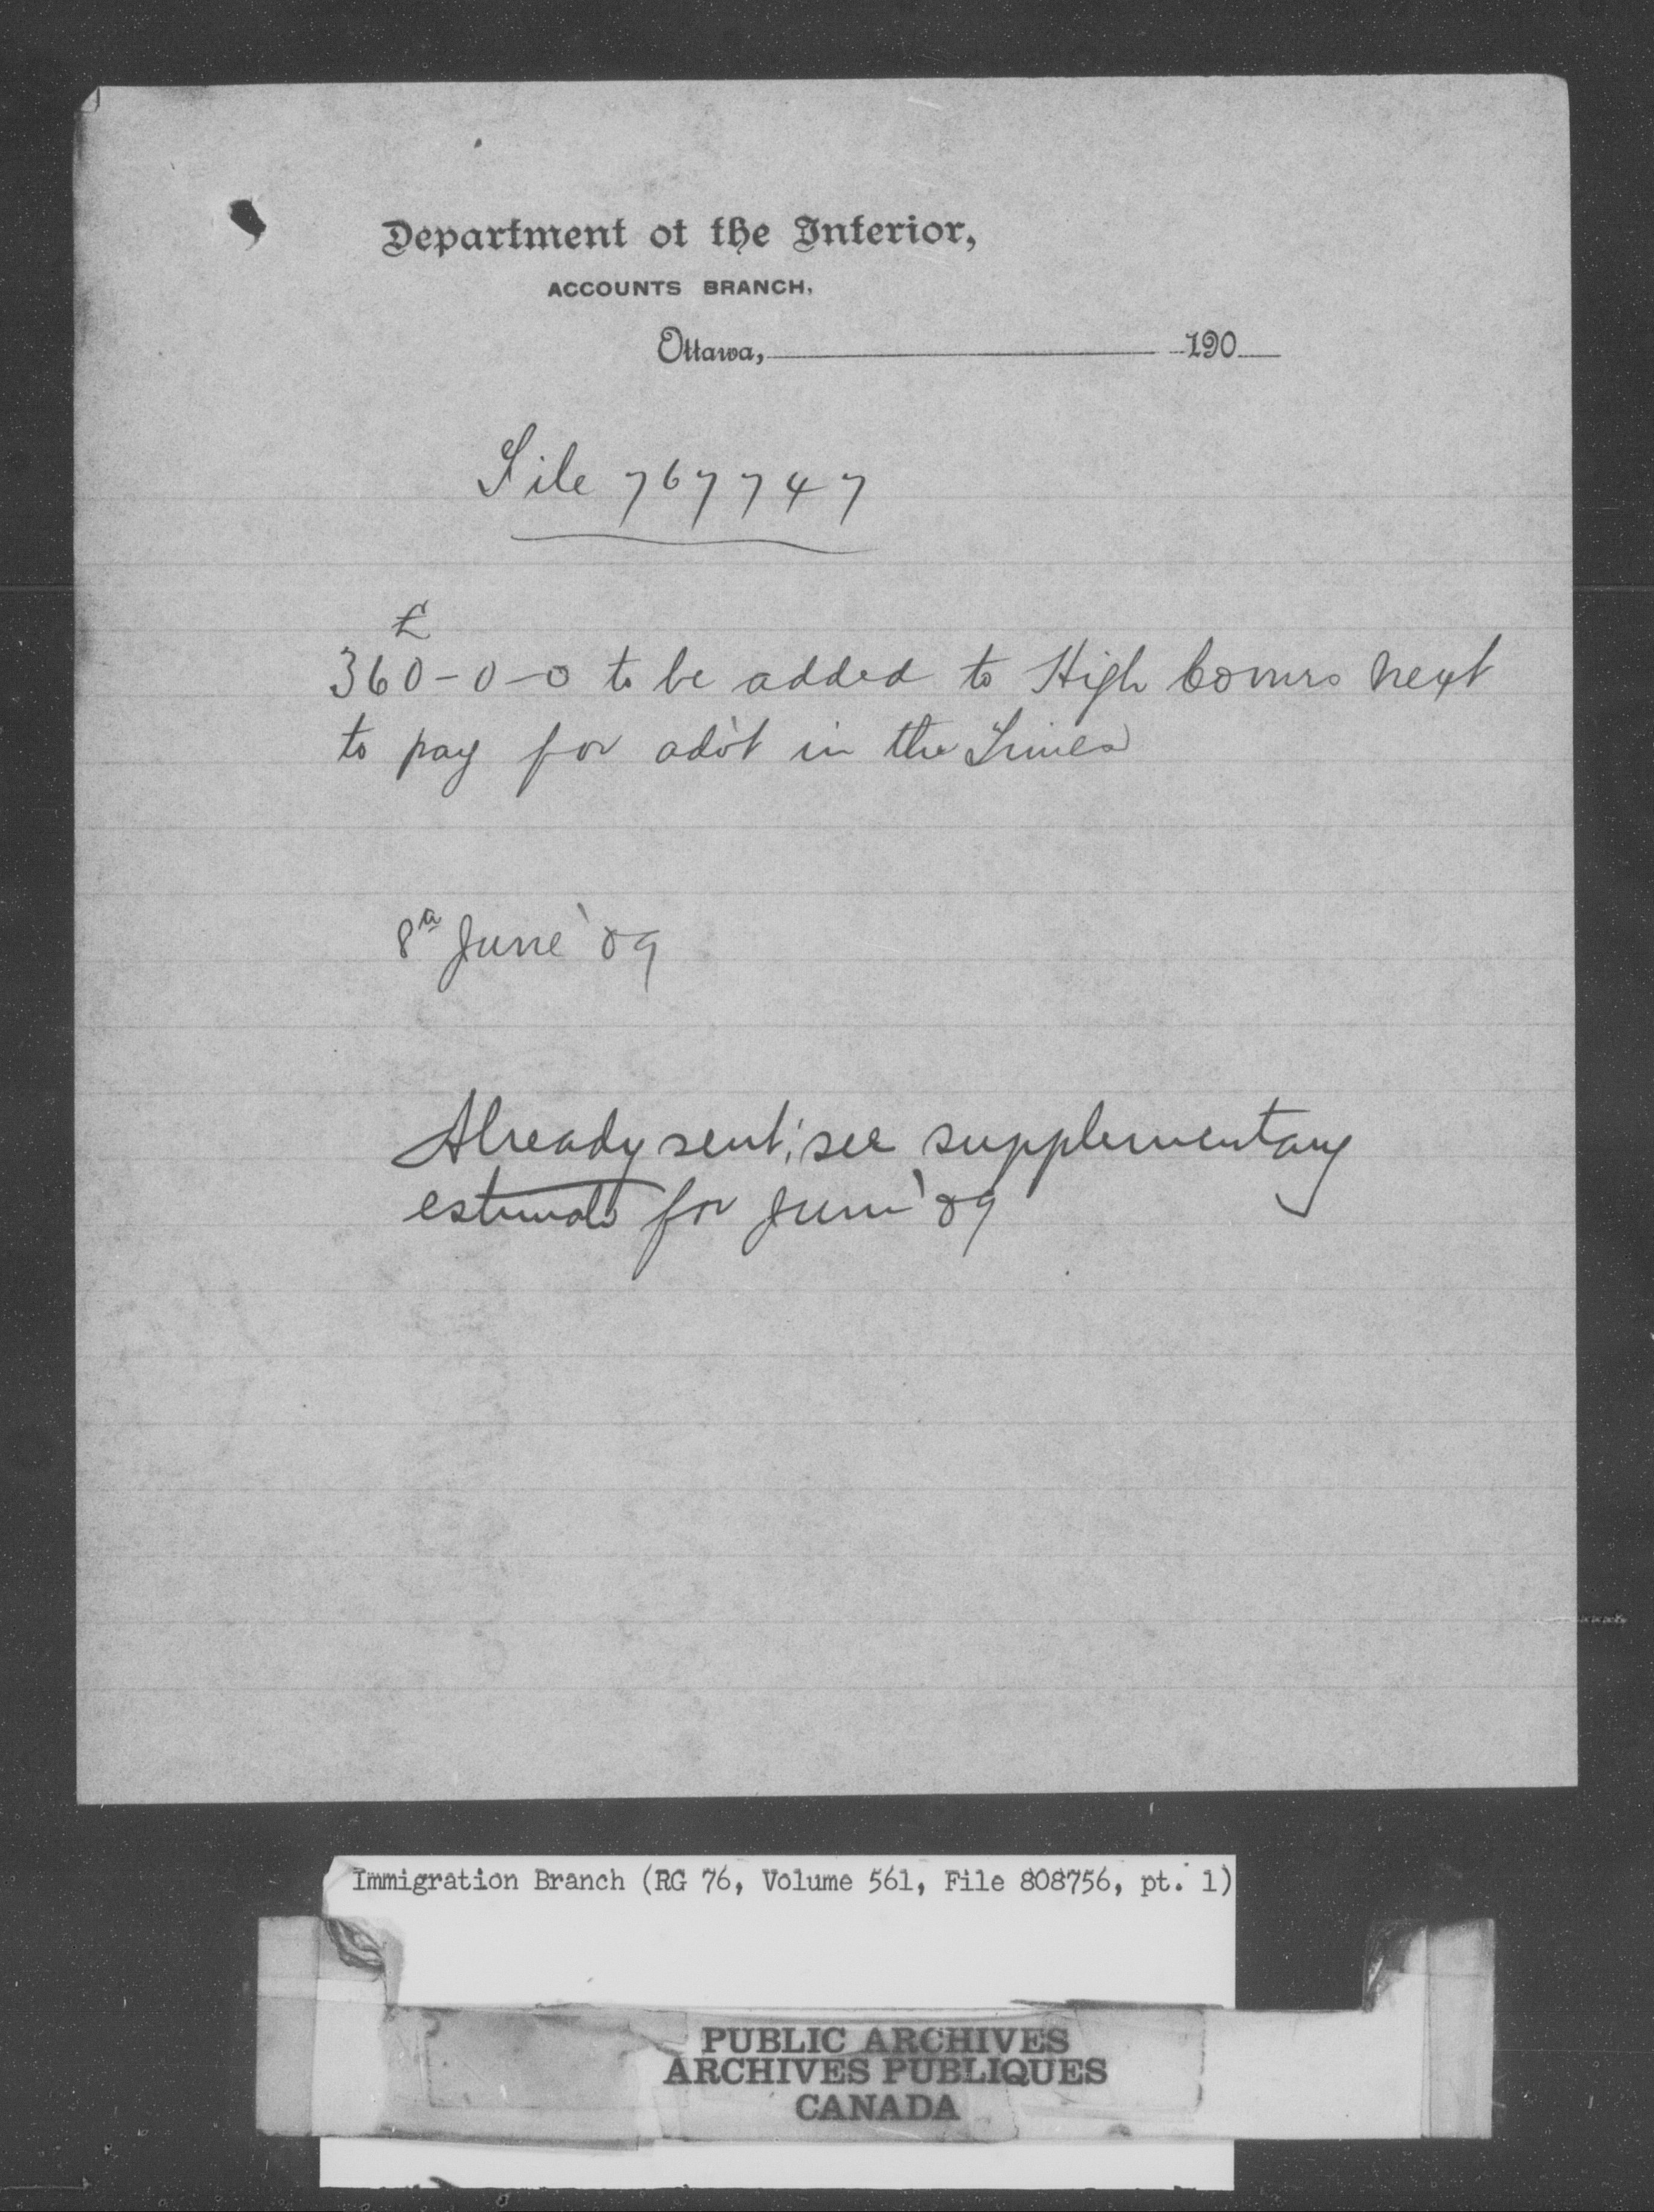 Department of the Interior,
ACCOUNTS BRANCH.
Ottawa, 190
File 767747
£
360-0-0 to be added to High Comrs next
to pay for adv't in the Times
8th June '09
Already sent; see supplementary
estimate for June '09
Immigration Branch (RG 76, Volume 561, File 808756, pt. 1)
PUBLIC ARCHIVES
ARCHIVES PUBLIQUES
CANADA